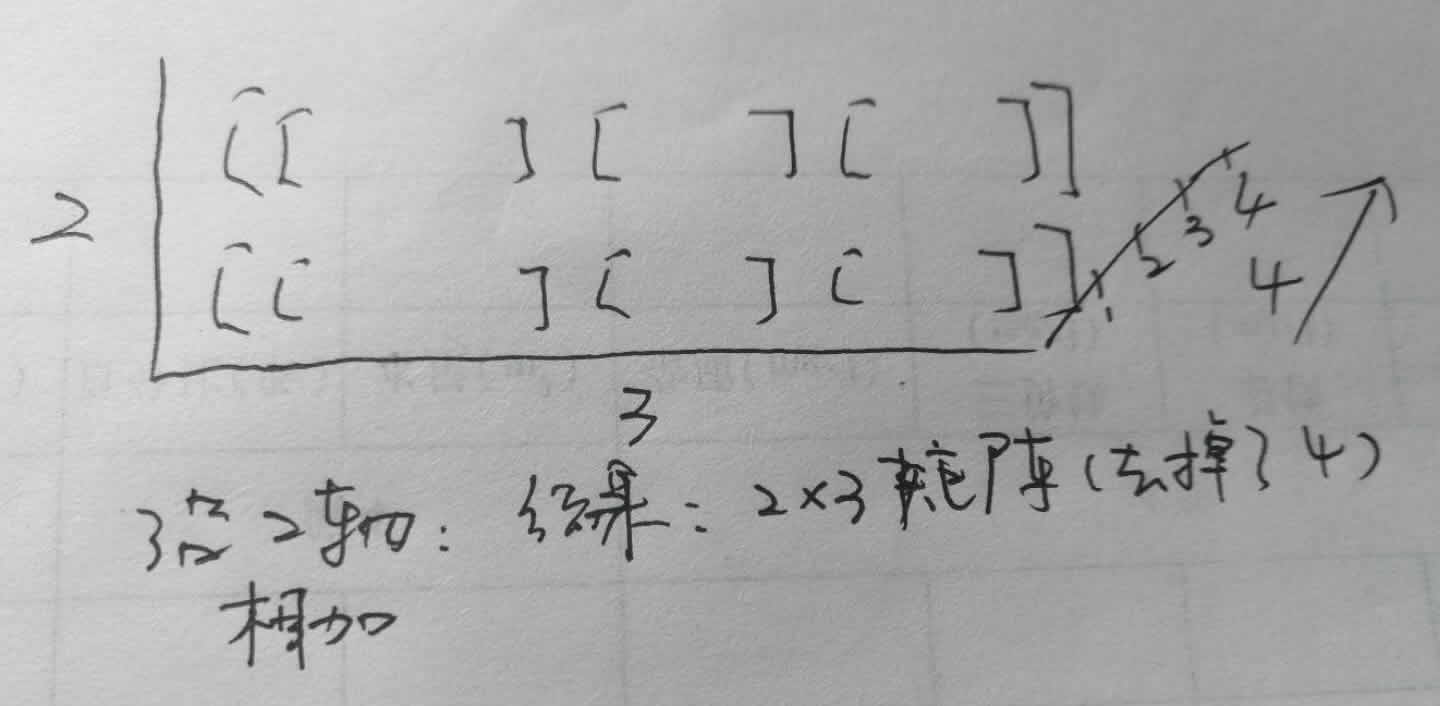 [[ ] [ ] [ ]]
2
[[ ] [ ] [ ]]
1 2 3 4
4
3
沿2轴: 结果: 2×3矩阵(去掉了4)
相加